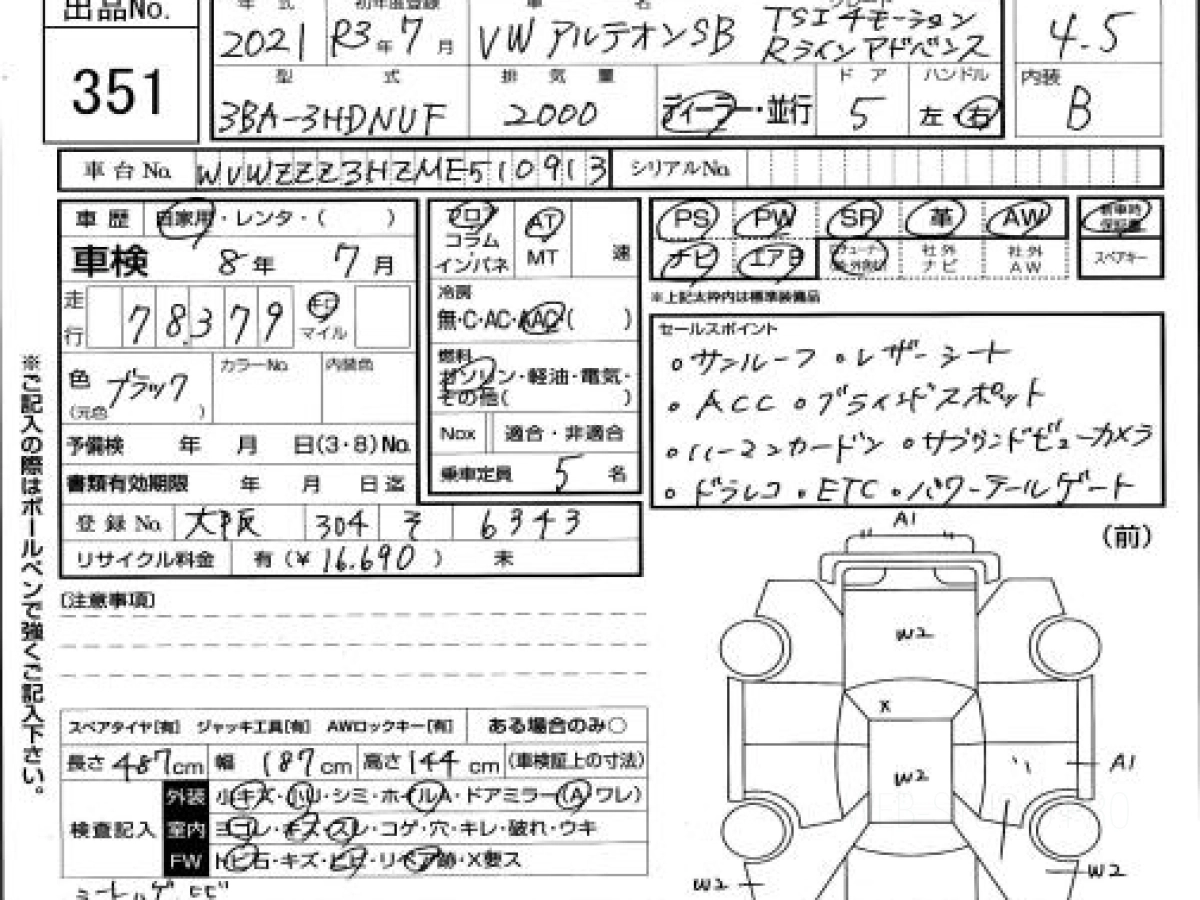 出品No.
351
年式
2021
初年度登録
R3年7月
車名
VW アルテオンSB
グレード
TSI 4モーション
Rラインアドバンス
4.5
型式
3BA-3HDNUF
排気量
2000
ディーラー・並行
ドア
5
ハンドル
左・右
内装
B
車台No. WVWZZZ3HZME510913
シリアルNo.
車歴 自家用・レンタ・( )
車検 8年 7月
走行 78,379 キロ
マイル
色 ブラック
(元色 )
カラーNo.
内装色
予備検 年 月 日(3・8)No.
書類有効期限 年 月 日迄
登録No. 大阪 304 そ 6343
リサイクル料金 有(¥ 16,690 ) 未
フロア
コラム
インパネ
AT
MT
速
冷房
無・C・AC・AAC( )
燃料
ガソリン・軽油・電気・
その他( )
Nox 適合・非適合
乗車定員 5 名
PS PW SR 革 AW
新車時
保証書
ナビ エアB
社外
ナビ
社外
AW
スペアキー
※上記太枠内は標準装備品
セールスポイント
○サンルーフ ○レザーシート
○ACC ○ブラインドスポット
○ハーマンカードン ○サラウンドビューカメラ
○ドラレコ ○ETC ○パワーテールゲート
※ご記入の際はボールペンで強くご記入下さい。
〔注意事項〕
スペアタイヤ[有] ジャッキ工具[有] AWロックキー[有] ある場合のみ○
長さ 487cm 幅 187cm 高さ 144cm (車検証上の寸法)
検査記入
外装 小キズ・小凹・シミ・ホイルA・ドアミラー(A・ワレ)
室内 ヨゴレ・キズ・スレ・コゲ・穴・キレ・破れ・ウキ
FW トビ石・キズ・ヒビ・リペア跡・X要ス
(前)
A1
W2
X
W2
A1
W2
W2